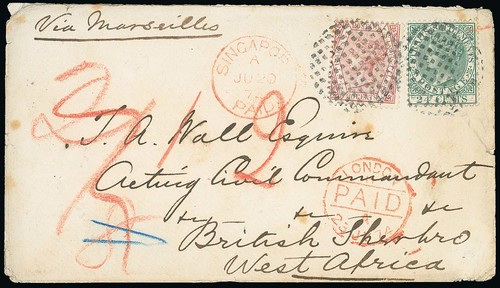 Via Marseilles
SINGAPORE
A
JU 20
PAID
CENTS
24 CENTS
T. A. Wall Esquire
Acting Civil Commandant
&c &c &c
British Sherbro
West Africa
LONDON
PAID